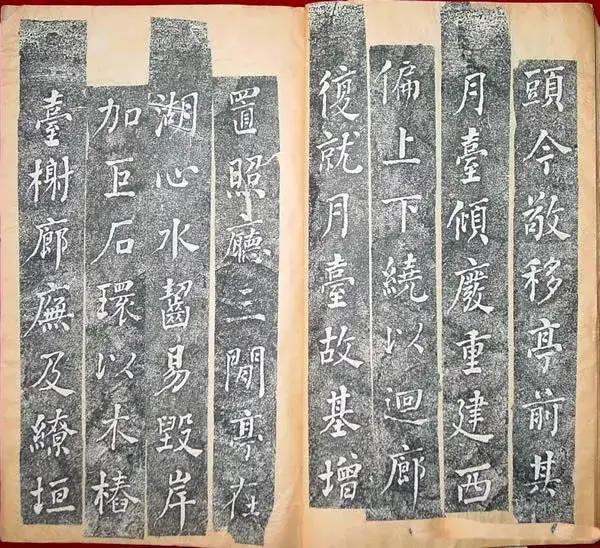 頭今敬移亭前其
月臺傾廢重建西
偏上下繞以迴廊
復就月臺故基增
置照廳三間亭在
湖心水齧易毀岸
加巨石環以木樁
臺榭廊廡及繚垣